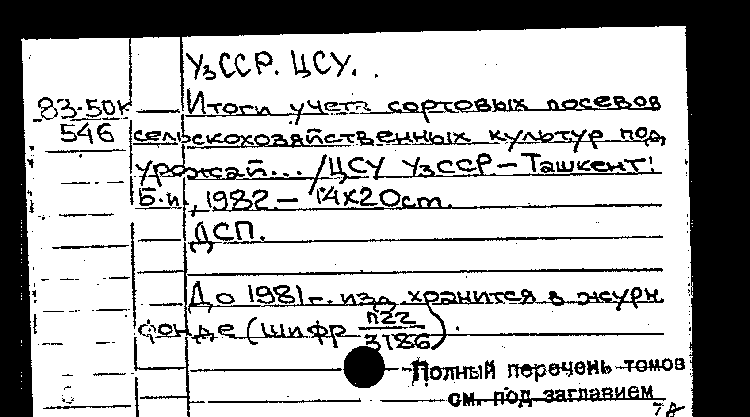 УзССР. ЦСУ.
83-50к Итоги учета сортовых посевов
546 сельскохозяйственных культур под
урожай... /ЦСУ УзССР.– Ташкент:
Б.и., 1982.– 14х20см.
ДСП.
До 1981г. изд. хранится в журн.
фонде (шифр П22/3186).
Полный перечень томов
см. под заглавием